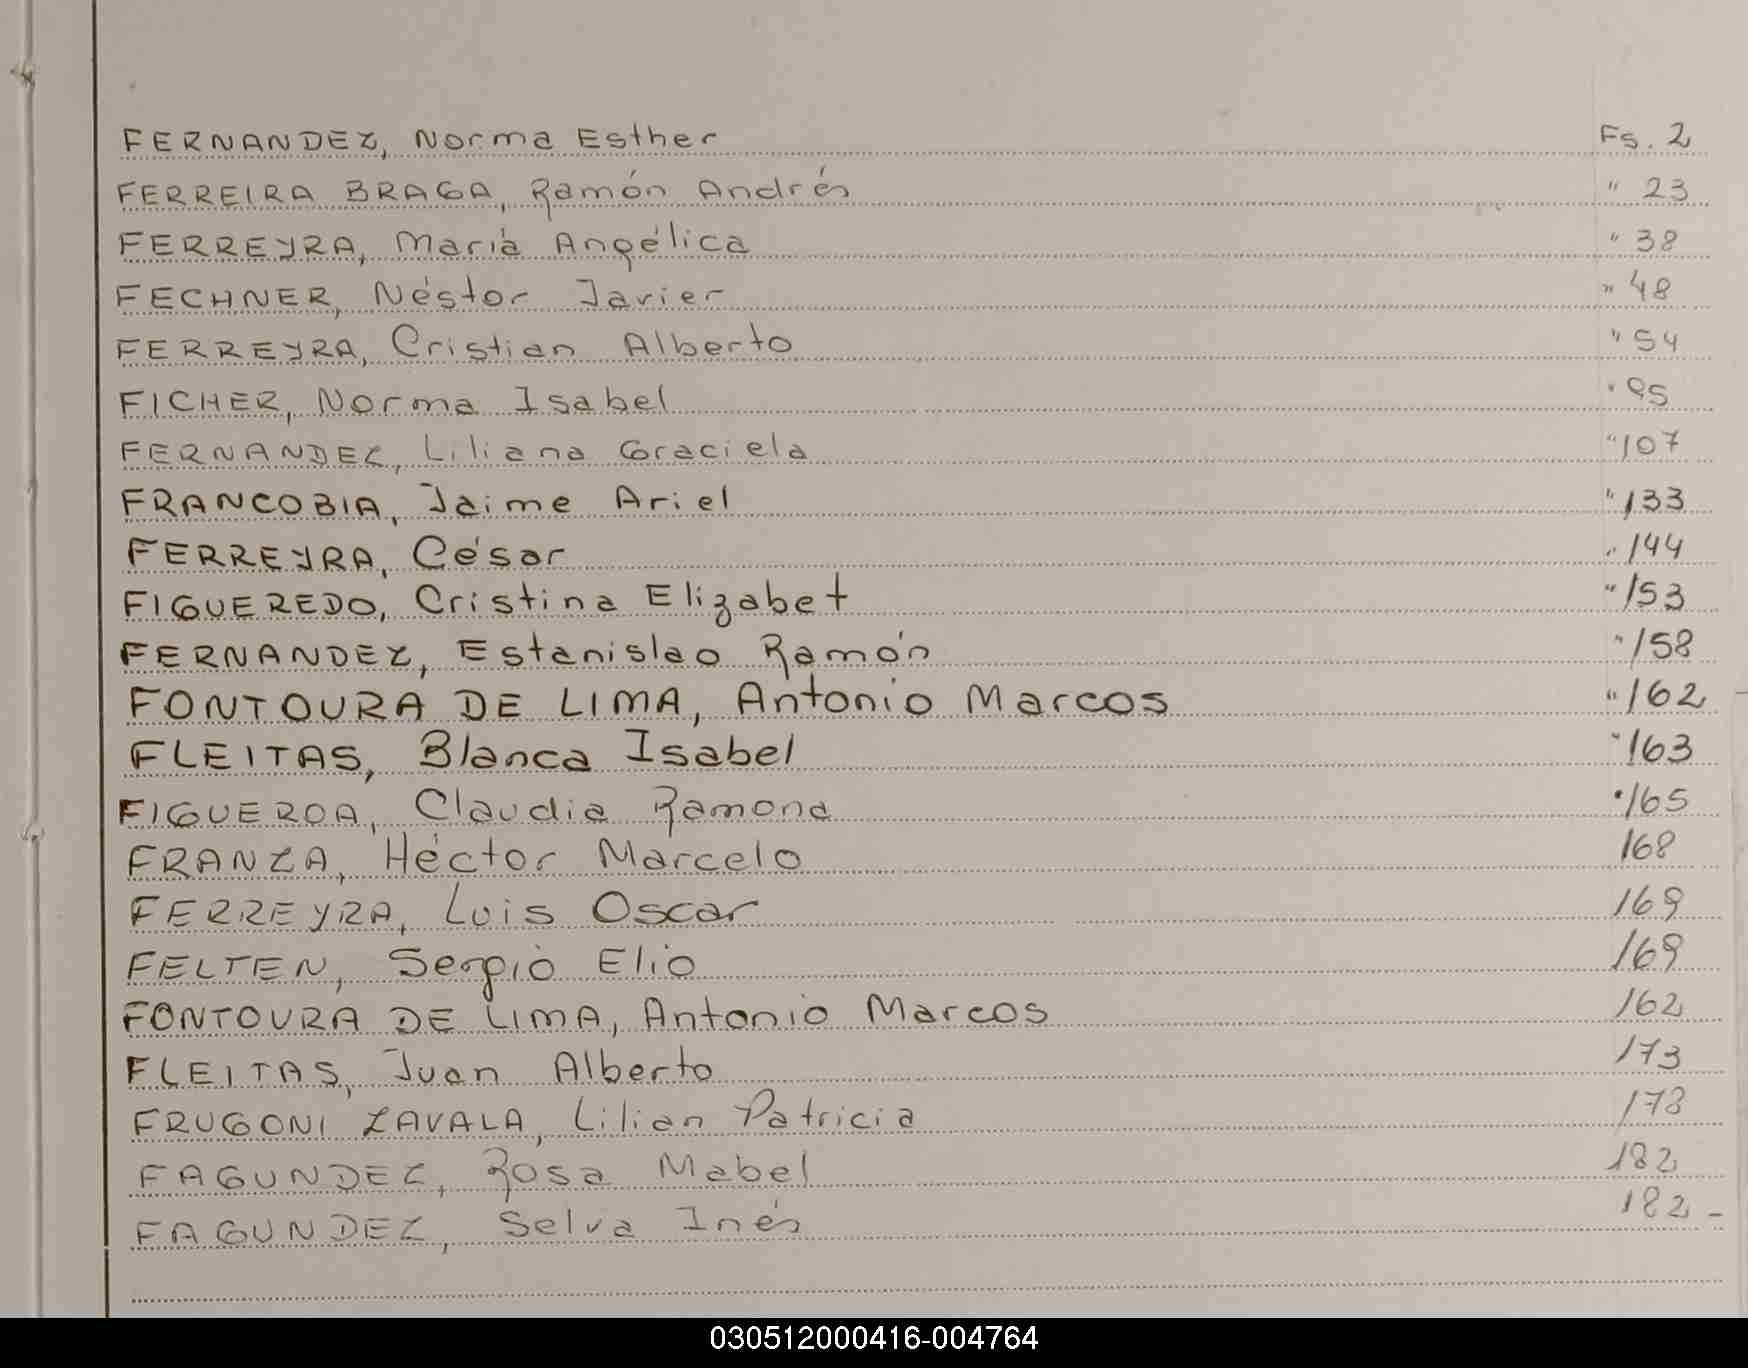 FERNANDEZ, Norma Esther Fs. 2
FERREIRA BRAGA, Ramón Andrés " 23
FERREYRA, María Angélica " 38
FECHNER, Néstor Javier " 48
FERREYRA, Cristian Alberto " 54
FICHER, Norma Isabel " 95
FERNANDEZ, Liliana Graciela " 107
FRANCOBIA, Jaime Ariel " 133
FERREYRA, César " 144
FIGUEREDO, Cristina Elizabet " 153
FERNANDEZ, Estanislao Ramón " 158
FONTOURA DE LIMA, Antonio Marcos " 162
FLEITAS, Blanca Isabel " 163
FIGUEROA, Claudia Ramona " 165
FRANZA, Héctor Marcelo 168
FERREYRA, Luis Oscar 169
FELTEN, Sergio Elio 169
FONTOURA DE LIMA, Antonio Marcos 162
FLEITAS, Juan Alberto 173
FRUGONI ZAVALA, Lilian Patricia 178
FAGUNDEZ, Rosa Mabel 182
FAGUNDEZ, Selva Inés 182 -
030512000416-004764